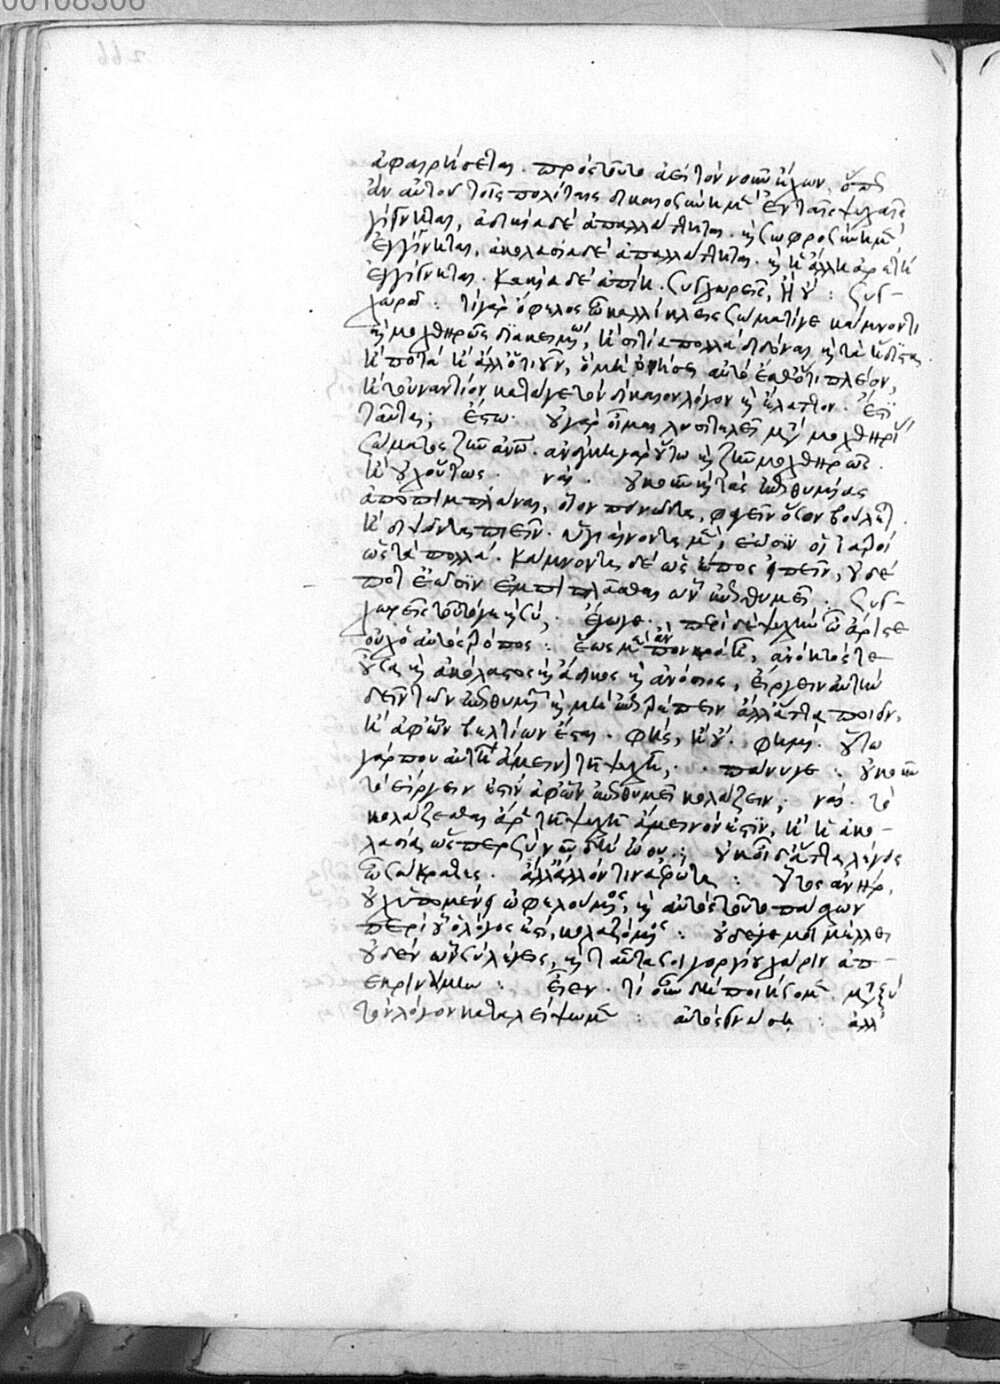 00108306
266
ἀφαιρήσεται. πρὸς τοῦτο ἀεὶ τὸν νοῦν ἔχων, ὅπως
ἂν αὐτοῦ τοῖς πολίταις δικαιοσύνη μὲν ἐν ταῖς ψυχαῖς
γίγνηται, ἀδικία δὲ ἀπαλλάττηται. καὶ σωφροσύνη μὲν
ἐγγίγνηται, ἀκολασία δὲ ἀπαλλάττηται. καὶ ἡ ἄλλη ἀρετὴ
ἐγγίγνηται. κακία δὲ ἀπίῃ. συγχωρεῖς, ἢ οὔ : συγ-
χωρῶ : τί γὰρ ὄφελος ὦ καλλίκλεις σώματί γε κάμνοντι
καὶ μοχθηρῶς διακειμένῳ, ἢ σιτία πολλὰ διδόναι καὶ τὰ ἥδιστα
ἢ ποτὰ ἢ ἄλλ' ὁτιοῦν, ὃ μὴ ὀνήσει αὐτὸ ἔσθ' ὅτι πλέον,
ἢ τοὐναντίον κατά γε τὸν δίκαιον λόγον καὶ ἔλαττον. ἔστι
ταῦτα; ἔστω. οὐ γὰρ οἶμαι λυσιτελεῖ μετὰ μοχθηρίας
σώματος ζῆν ἀνθρώπῳ. ἀνάγκη γὰρ οὕτω καὶ ζῆν μοχθηρῶς.
ἢ οὐχ οὕτως. ναί. οὐκοῦν καὶ τὰς ἐπιθυμίας
ἀποπιμπλάναι, οἷον πεινῶντα, φαγεῖν ὅσον βούλεται
ἢ διψῶντα πιεῖν. ὑγιαίνοντα μὲν, ἐῶσιν οἱ ἰατροὶ
ὡς τὰ πολλά. κάμνοντα δὲ ὡς ἔπος εἰπεῖν, οὐδέ
ποτ' ἐῶσιν ἐμπίπλασθαι ὧν ἐπιθυμεῖ. συγ-
χωρεῖς τοῦτό γε καὶ σύ, ἔγωγε. περὶ δὲ ψυχὴν ὦ ἄριστε
οὐχ ὁ αὐτὸς τρόπος : ἕως μὲν ἂν πονηρὰ ᾖ, ἀνόητός τε
οὖσα καὶ ἀκόλαστος καὶ ἄδικος καὶ ἀνόσιος, εἴργειν αὐτὴν
δεῖ τῶν ἐπιθυμιῶν καὶ μὴ ἐπιτρέπειν ἄλλ' ἄττα ποιεῖν,
ἢ ἀφ' ὧν βελτίων ἔσται. φῂς, ἢ οὔ. φημί. οὕτω
γάρ που αὐτῇ ἄμεινον τῇ ψυχῇ, πάνυ γε : οὐκοῦν
τὸ εἴργειν ἐστὶν ἀφ' ὧν ἐπιθυμεῖ κολάζειν; ναί. τὸ
κολάζεσθαι ἄρα τῇ ψυχῇ ἄμεινόν ἐστιν, ἢ ἡ ἀκο-
λασία ὥσπερ σὺ νῦν δὴ ᾤου.; οὐκ οἶδ' ἅττα λέγεις
ὦ σώκρατες. ἀλλ' ἄλλόν τινα ἐρώτα : οὗτος ἀνὴρ,
οὐχ ὑπομένει ὠφελούμενος, καὶ αὐτὸς τοῦτο πάσχων
περὶ οὗ ὁ λόγος ἐστὶ, κολαζόμενος : οὐδέ γέ μοι μέλει
οὐδὲν ὧν σὺ λέγεις, καὶ ταῦτά σοι γοργίου χάριν ἀπ-
εκρινάμην : εἶεν. τί οὖν δὴ ποιήσομεν. μεταξὺ
τὸν λόγον καταλείψωμεν : αὐτὸς γνώσῃ : ἀλλ'